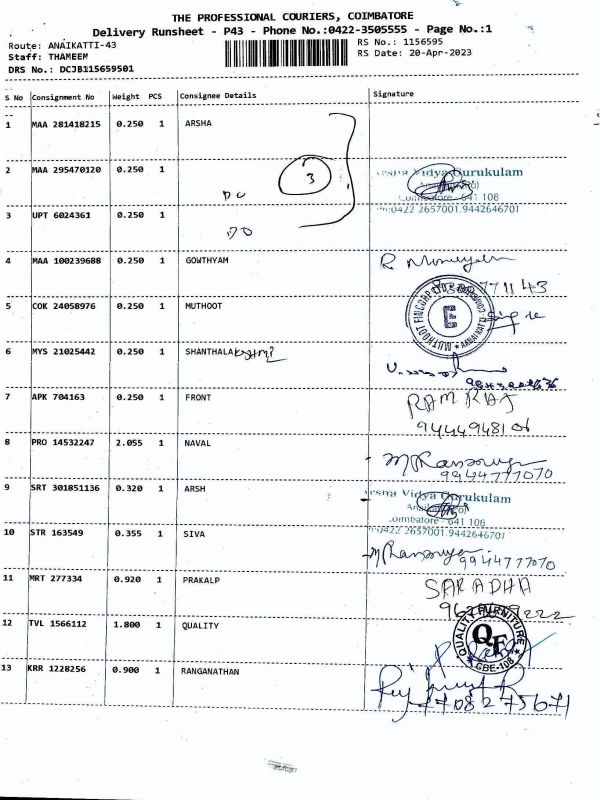 THE PROFESSIONAL COURIERS, COIMBATORE
Delivery Runsheet - P43 - Phone No.:0422-3505555 - Page No.:1
Route: ANAIKATTI-43 RS No.: 1156595
Staff: THAMEEM RS Date: 20-Apr-2023
DRS No.: DCJB115659501
S No Consignment No Weight PCS Consignee Details Signature
1 MAA 281418215 0.250 1 ARSHA
2 MAA 295470120 0.250 1 3 Vidya Gurukulam
DO Coimbatore - 641 108
3 UPT 6024361 0.250 1 0422 2657001.9442646701
DO
4 MAA 100239688 0.250 1 GOWTHYAM R
5 COK 24058976 0.250 1 MUTHOOT MUTHOOT FINCORP E
6 MYS 21025442 0.250 1 SHANTHALAKSHMI
7 APK 704163 0.250 1 FRONT RAM RAJ
9444948106
8 PRO 14532247 2.055 1 NAVAL
9944777070
9 SRT 301851136 0.320 1 ARSH Vidya Gurukulam
Coimbatore - 641 108
10 STR 163549 0.355 1 SIVA 0422 2657001.9442646701
9944777070
11 MRT 277334 0.920 1 PRAKALP SARADHA
12 TVL 1566112 1.800 1 QUALITY QUALITY FURNITURE QF GBE-108
13 KRR 1228256 0.900 1 RANGANATHAN
7708275671